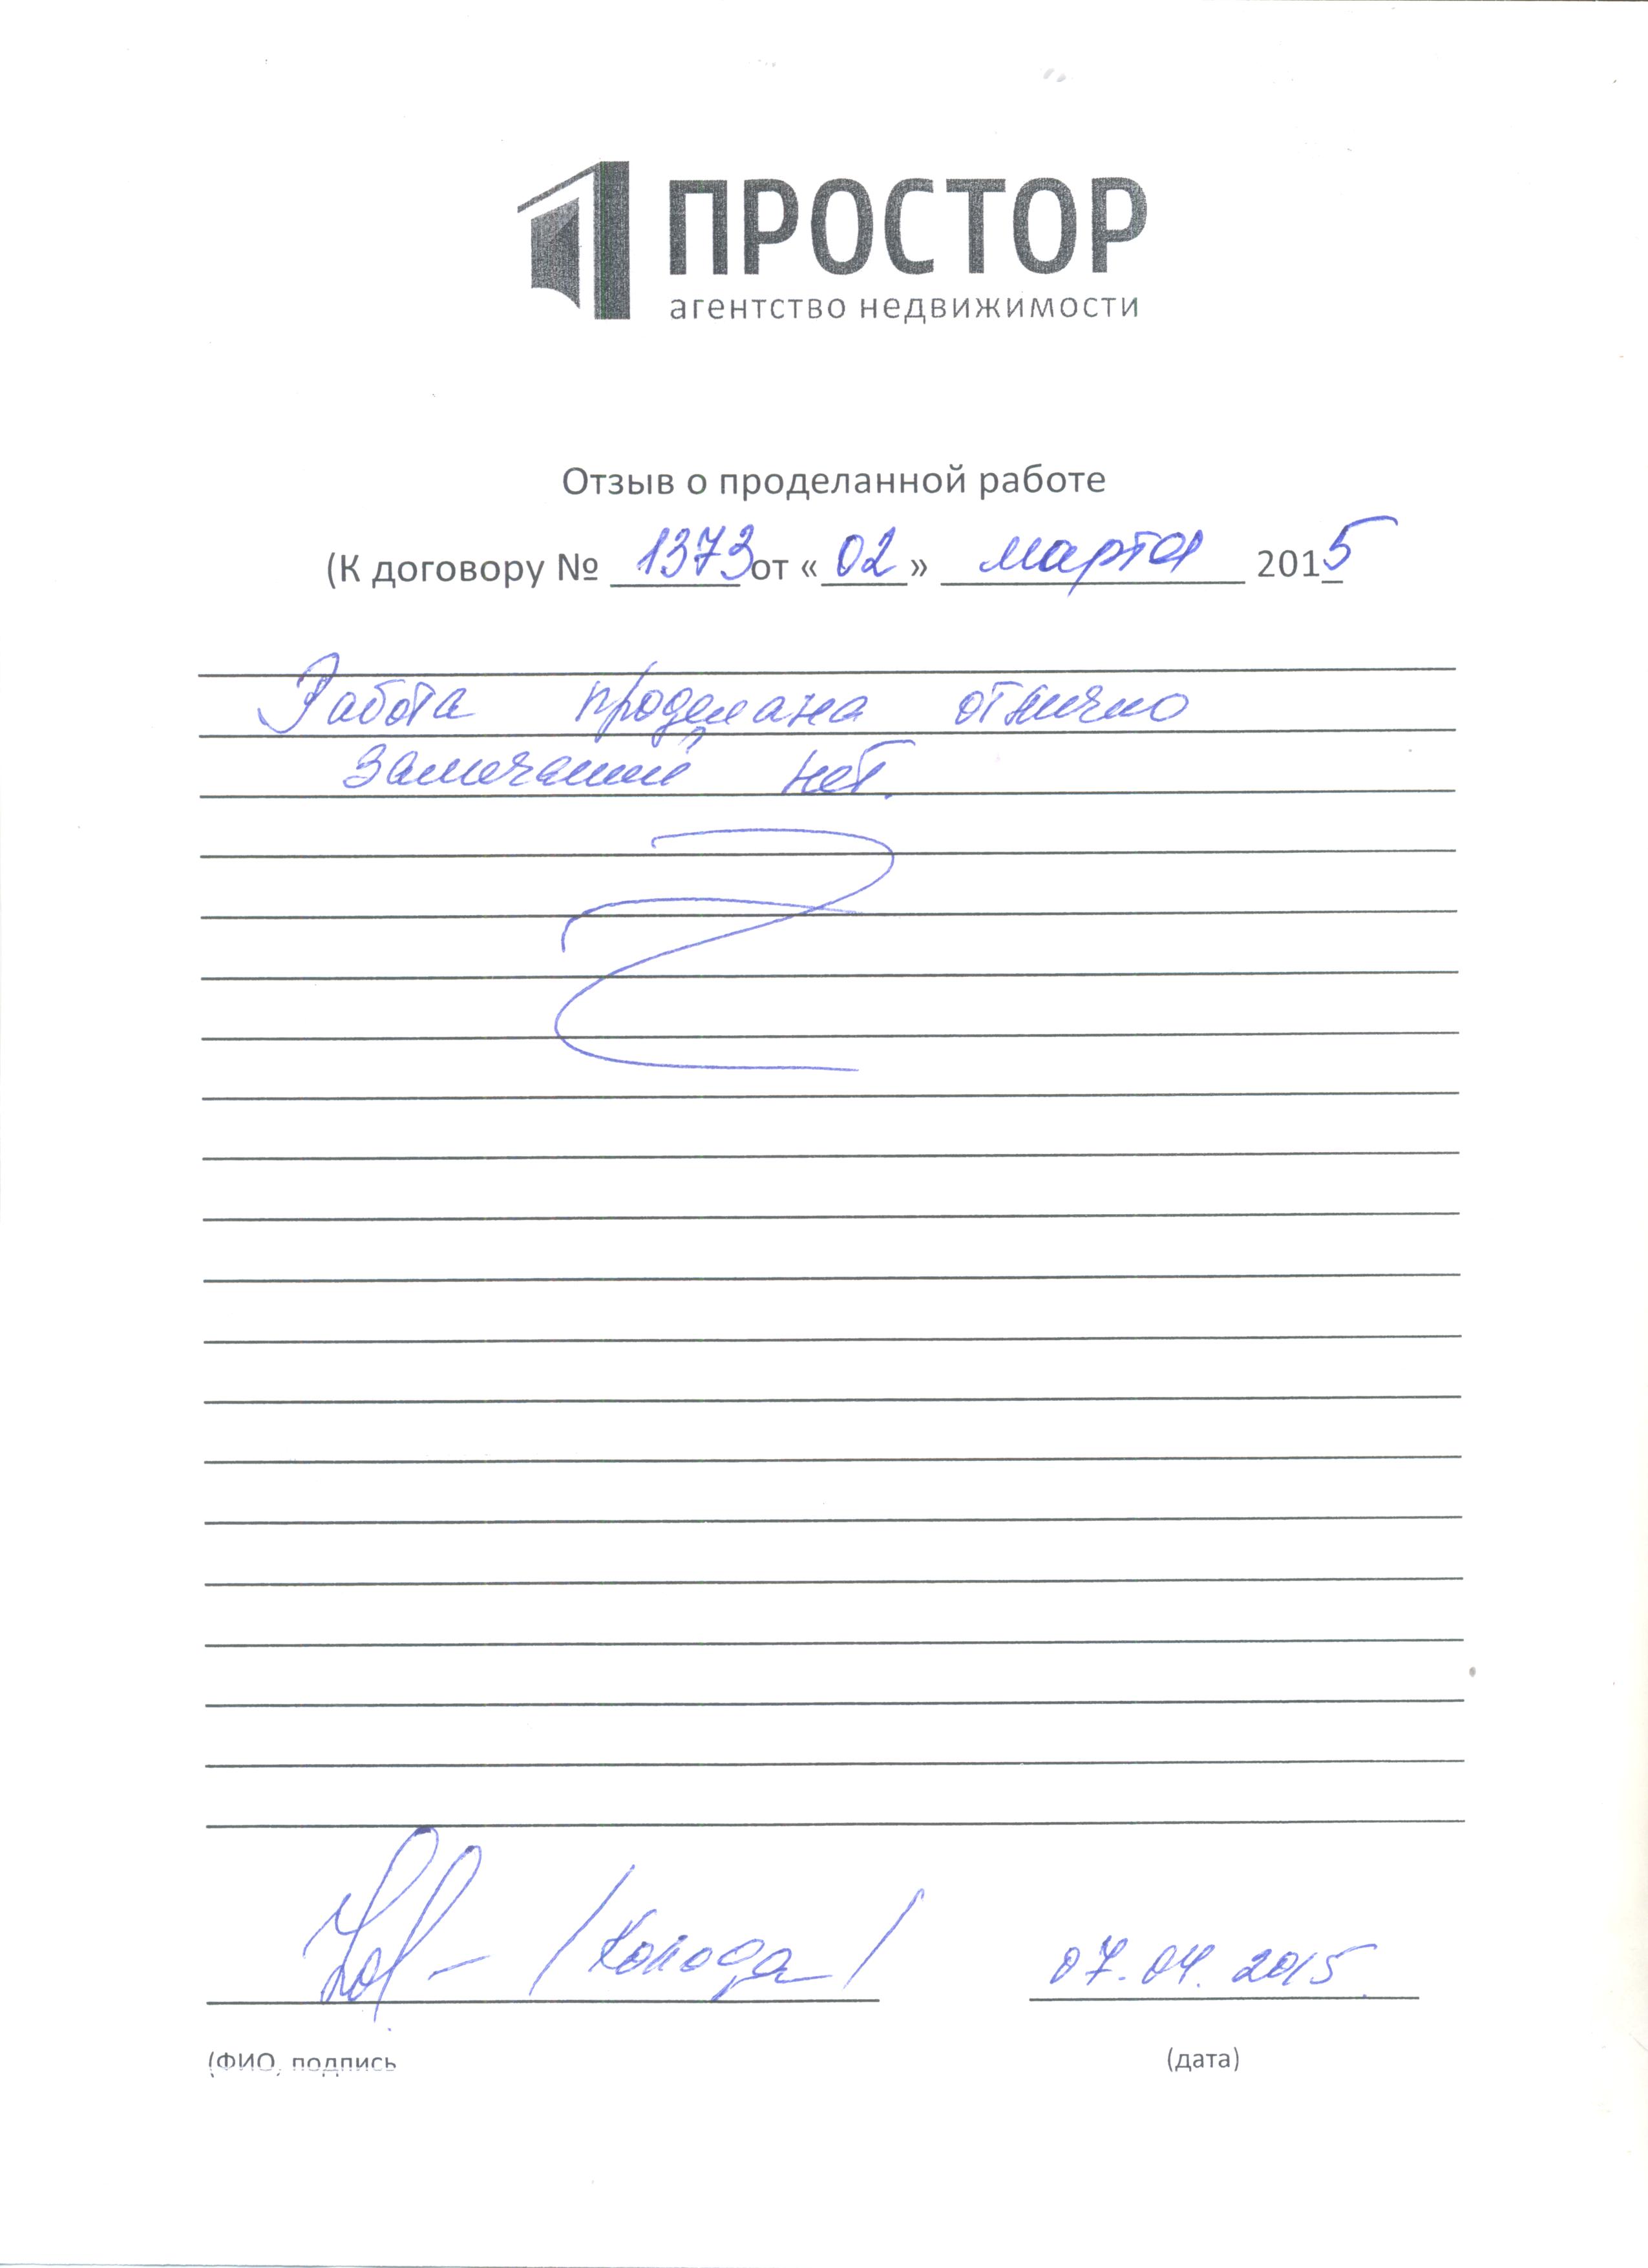 ПРОСТОР
агентство недвижимости
Отзыв о проделанной работе
(К договору № 1373 от «02» марта 2015
Работа проделана отлично
Замечаний нет.
/Колода/ 07.04.2015
(ФИО, подпись (дата)